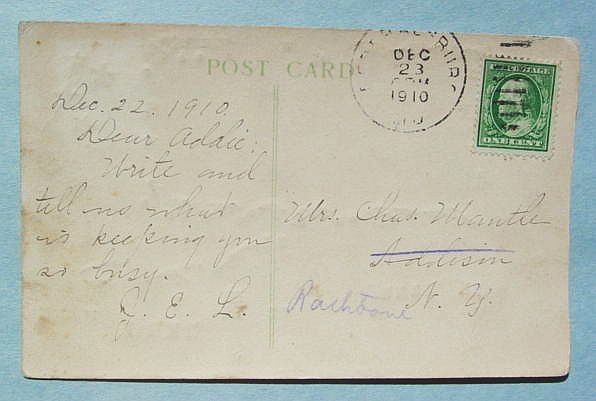 POST CARD
DEC
23
1910
Dec. 22, 1910.
Dear Addie:
Write and
tell us what
is keeping you
so busy.
J. E. L.
Mrs. Chas. Mantle
Addison
N. Y.
Rathbone